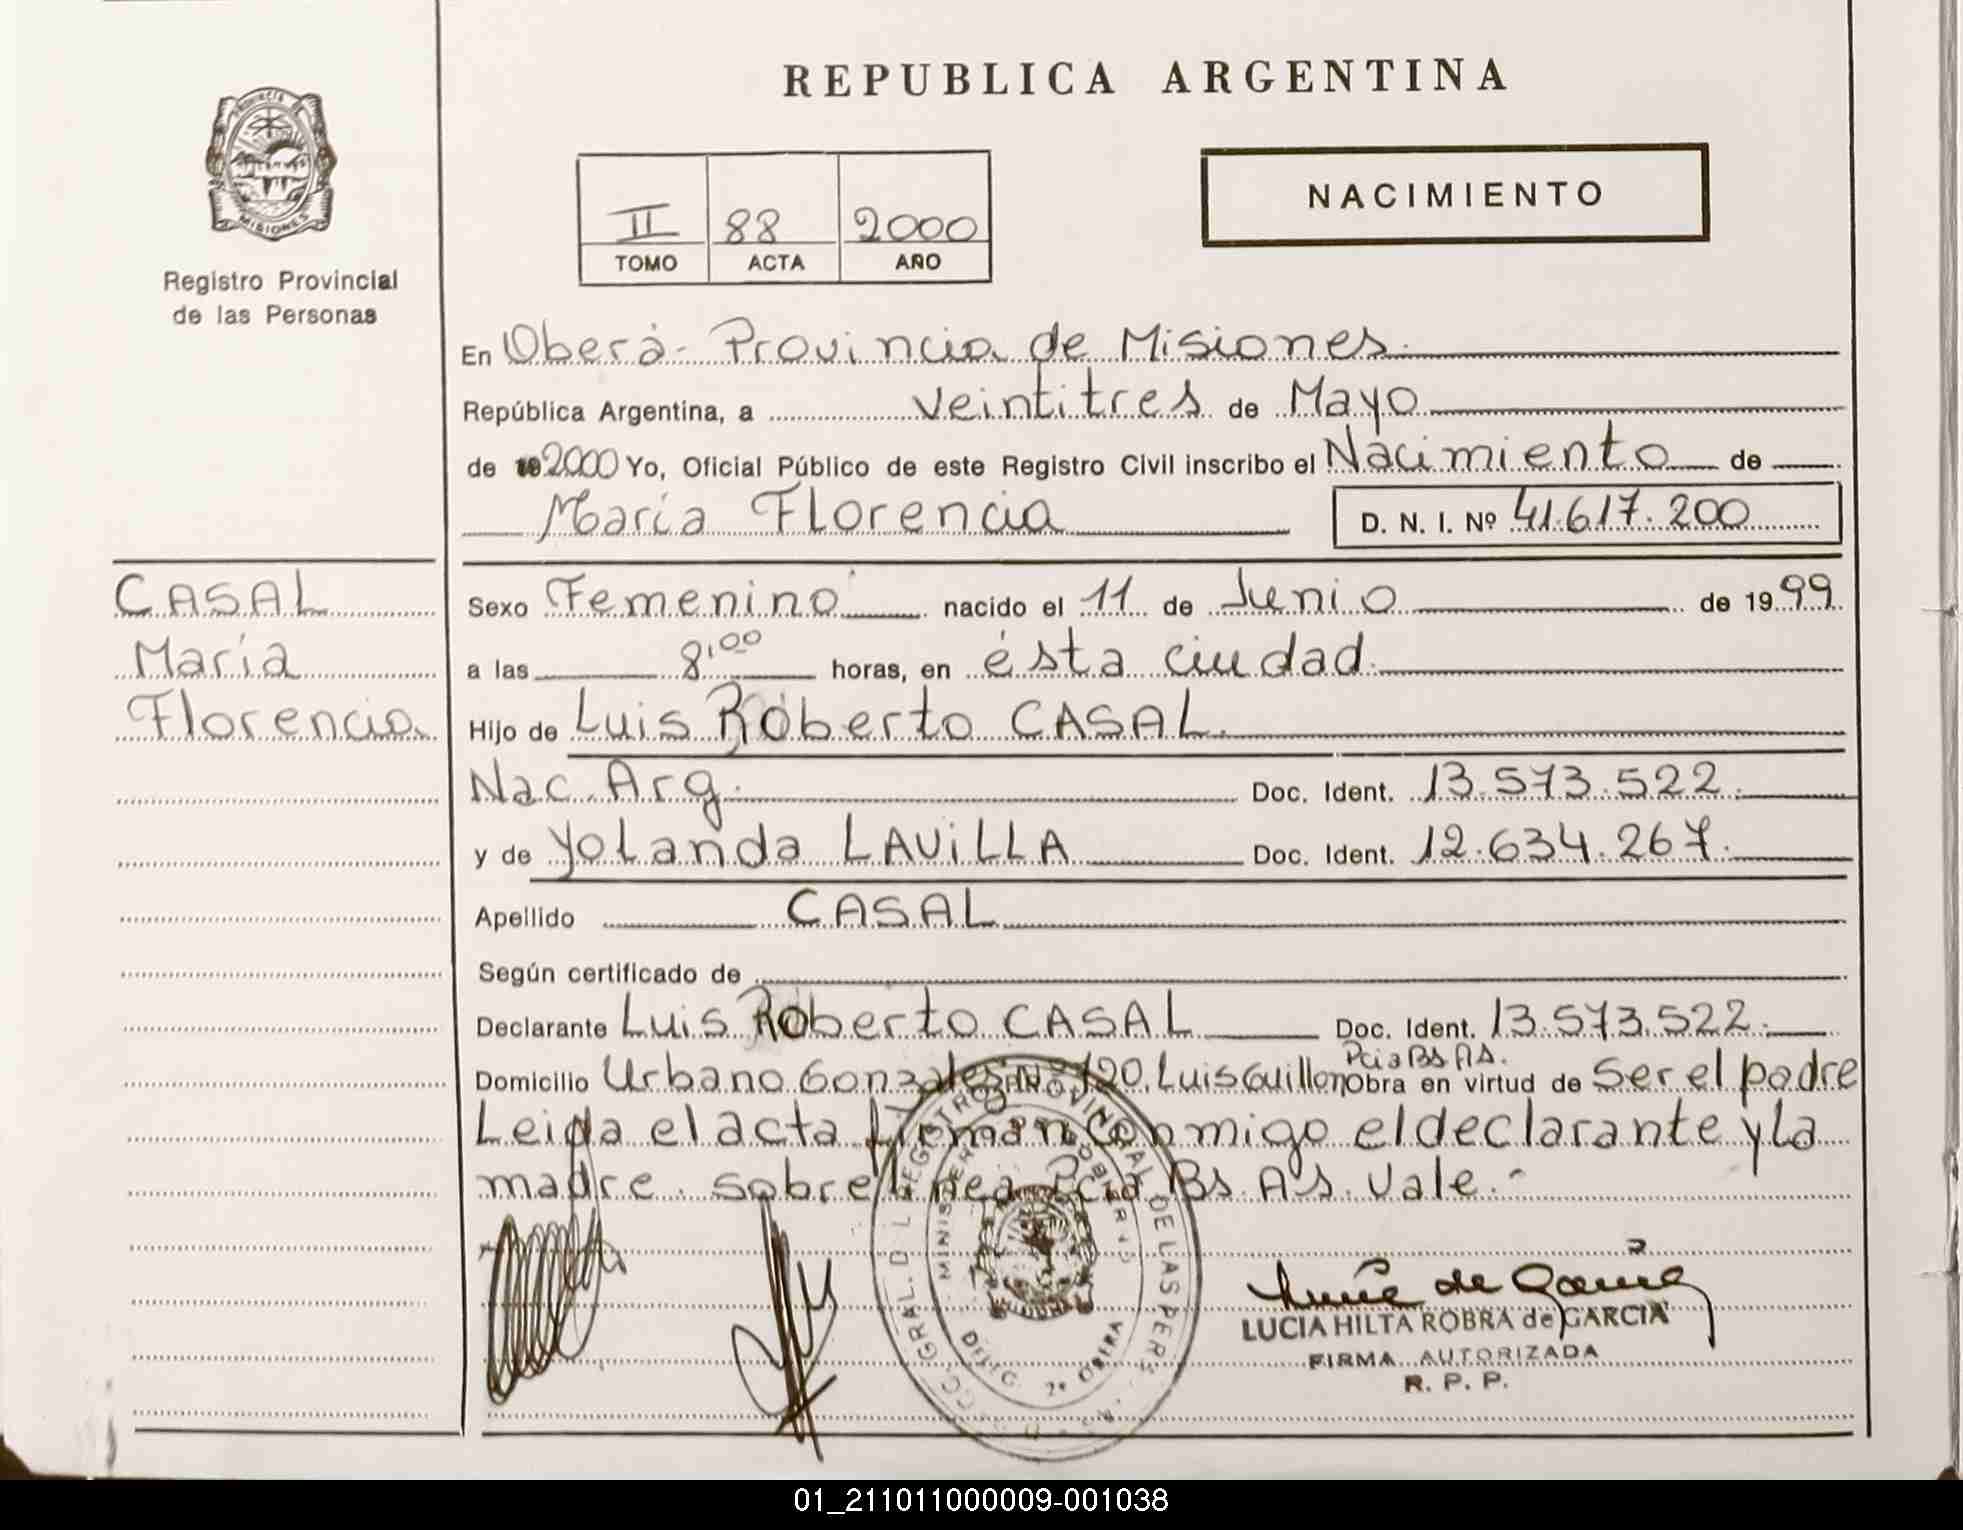 REPUBLICA ARGENTINA
PROVINCIA DE
MISIONES
Registro Provincial
de las Personas
II 88 2000
TOMO ACTA AÑO
NACIMIENTO
En Oberá - Provincia de Misiones.
República Argentina, a veintitres de Mayo
de 19 2000 Yo, Oficial Público de este Registro Civil inscribo el Nacimiento de
María Florencia D. N. I. Nº 41.617.200
CASAL
María
Florencia
Sexo Femenino nacido el 11 de Junio de 19 99
a las 8,00 horas, en ésta ciudad.
Hijo de Luis Roberto CASAL.
Nac. Arg. Doc. Ident. 13.573.522.
y de Yolanda LAVILLA Doc. Ident. 12.634.267.
Apellido CASAL
Según certificado de
Declarante Luis Roberto CASAL Doc. Ident. 13.573.522.
Pcia Bs As.
Domicilio Urbano Gonzales Nº 120. Luis Guillon Obra en virtud de Ser el padre
Leida el acta firman conmigo el declarante y la
madre. Sobre linea Pcia Bs. As. Vale.-
REGISTRO PROVINCIAL DE LAS PERS.
OBERA
LUCIA HILTA ROBRA de GARCIA
FIRMA AUTORIZADA
R. P. P.
01_211011000009-001038